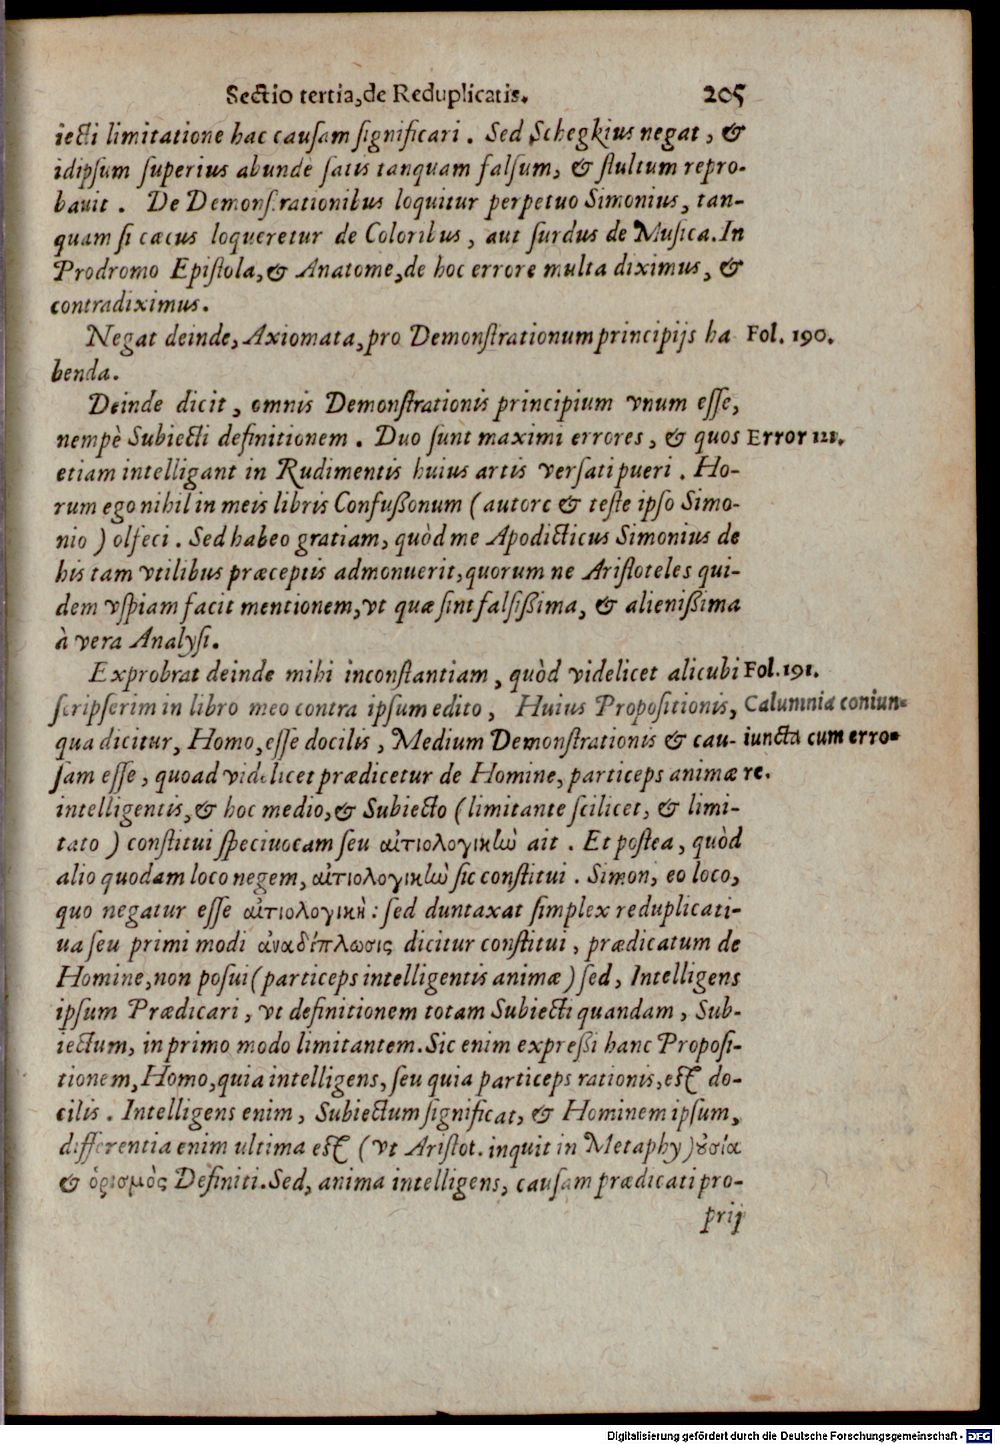 Sectio tertia, de Reduplicatis. 205
iecti limitatione hac causam significari. Sed Schegkius negat, &
idipsum superius abundè satis tanquam falsum, & stultum repro-
bauit. De Demonstrationibus loquitur perpetuo Simonius, tan-
quam si cæcus loqueretur de Coloribus, aut surdus de Musica. In
Prodromo Epistola, & Anatome, de hoc errore multa diximus, &
contradiximus.
Negat deinde, Axiomata, pro Demonstrationum principijs ha Fol. 190.
benda.
Deinde dicit, omnis Demonstrationis principium vnum esse,
nempè Subiecti definitionem. Duo sunt maximi errores, & quos Error III.
etiam intelligant in Rudimentis huius artis versati pueri. Ho-
rum ego nihil in meis libris Confußonum (autore & teste ipso Simo-
nio) olfeci. Sed habeo gratiam, quòd me Apodicticus Simonius de
his tam vtilibus præceptis admonuerit, quorum ne Aristoteles qui-
dem vspiam facit mentionem, vt quæ sint falsißima, & alienißima
à vera Analysi.
Exprobrat deinde mihi inconstantiam, quòd videlicet alicubi Fol. 191.
scripserim in libro meo contra ipsum edito, Huius Propositionis, Calumnia coniun-
qua dicitur, Homo, esse docilis, Medium Demonstrationis & cau- iuncta cum erro-
sam esse, quoad videlicet prædicetur de Homine, particeps animæ re.
intelligentis, & hoc medio, & Subiecto (limitante scilicet, & limi-
tato) constitui speciuocam seu αἰτιολογικὼ ait. Et postea, quòd
alio quodam loco negem, αἰτιολογικὼ sic constitui. Simon, eo loco,
quo negatur esse αἰτιολογικὴ: sed duntaxat simplex reduplicati-
ua seu primi modi ἀναδίπλωσις dicitur constitui, prædicatum de
Homine, non posui (particeps intelligentis animæ) sed, Intelligens
ipsum Prædicari, vt definitionem totam Subiecti quandam, Sub-
iectum, in primo modo limitantem. Sic enim expreßi hanc Proposi-
tionem, Homo, quia intelligens, seu quia particeps rationis, est do-
cilis. Intelligens enim, Subiectum significat, & Hominem ipsum,
differentia enim ultima est (vt Aristot. inquit in Metaphy) ȣσία
& ὁρισμὸς Definiti. Sed, anima intelligens, causam prædicati pro-
prij
Digitalisierung gefördert durch die Deutsche Forschungsgemeinschaft - DFG